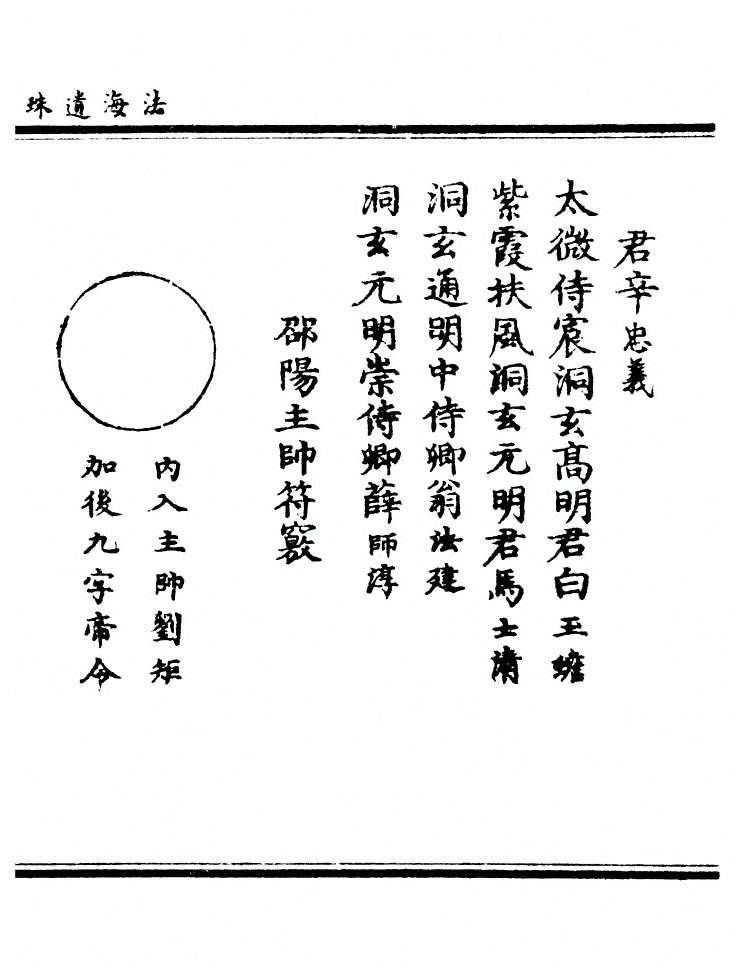 法海遺珠
君辛忠義
太微侍宸洞玄高明君白玉蟾
紫霞扶風洞玄元明君馬士清
洞玄通明中侍卿翁法建
洞玄元明崇侍卿薛師淳
邵陽主帥符竅
內入主帥劉矩
加後九字帝令